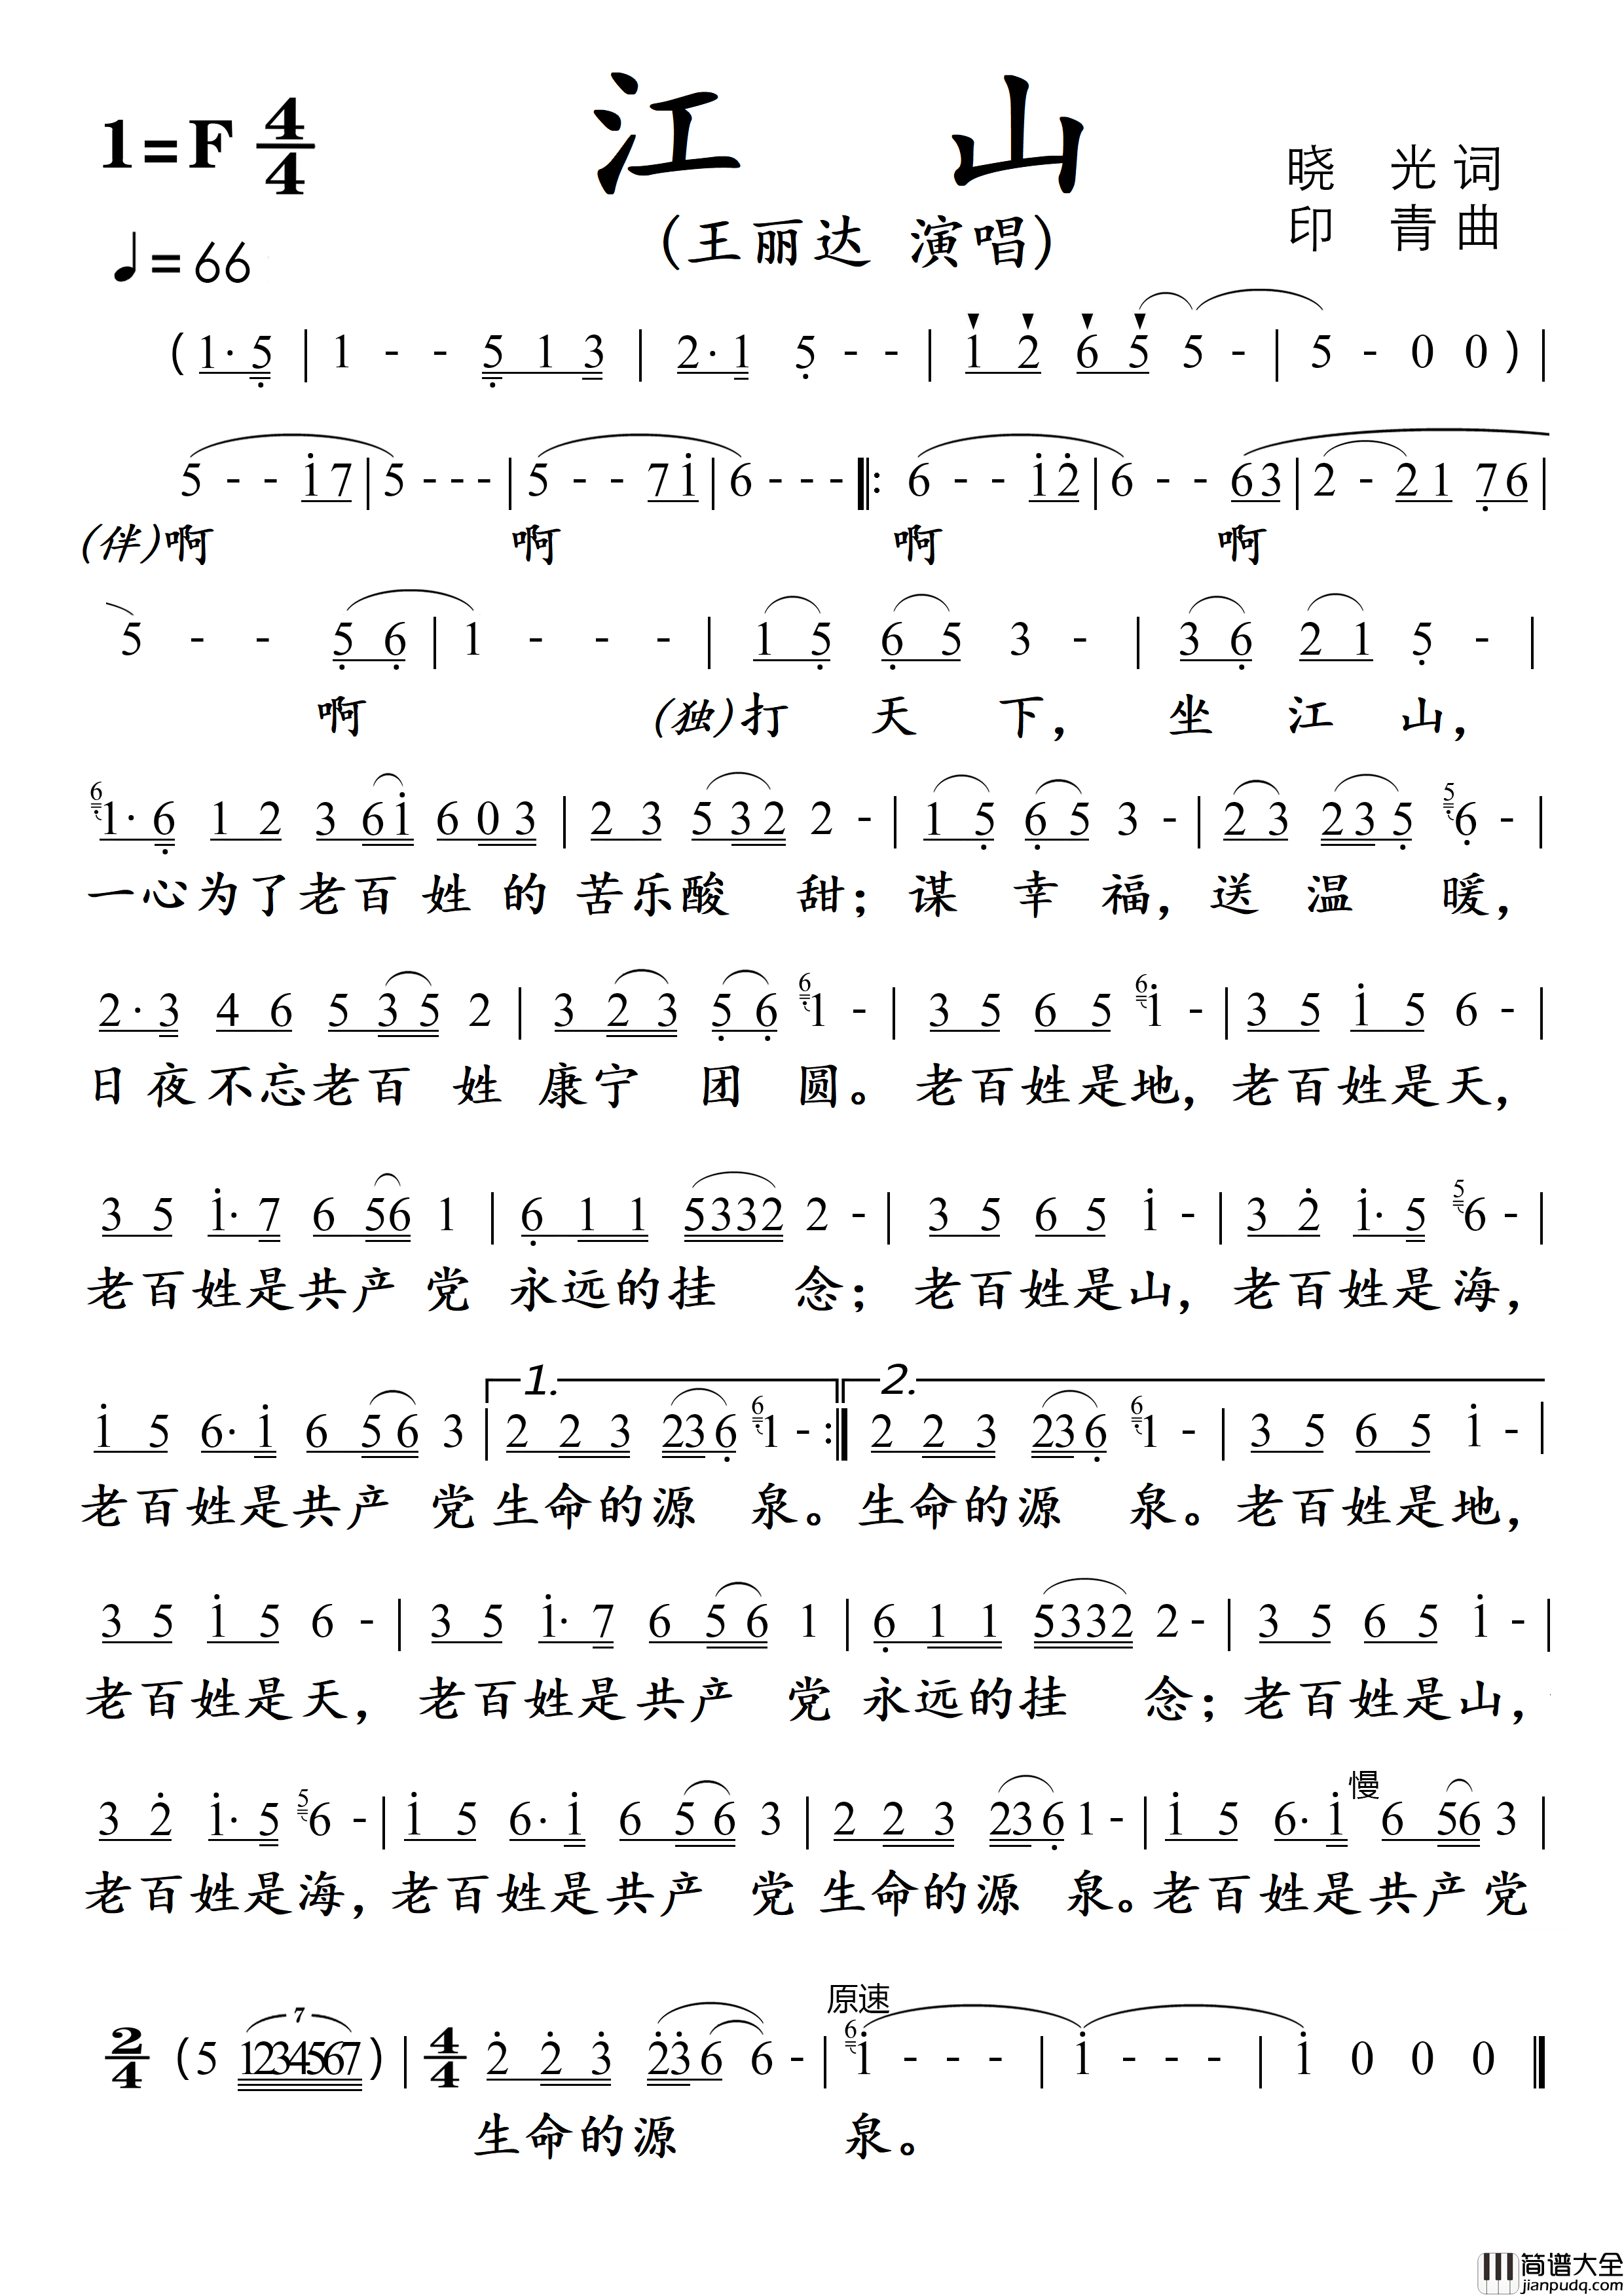 江 山
1=F 4/4
晓 光 词
(王丽达 演唱)
印 青 曲
♩=66
( 1· 5 | 1 - - 5 1 3 | 2· 1 5 - - | 1 2 6 5 5 - | 5 - 0 0 ) |
5 - - 1 7 | 5 - - - | 5 - - 7 1 | 6 - - - ‖: 6 - - 1 2 | 6 - - 6 3 | 2 - 2 1 7 6 |
(伴)啊 啊 啊 啊
5 - - 5 6 | 1 - - - | 1 5 6 5 3 - | 3 6 2 1 5 - |
啊 (独)打 天 下， 坐 江 山，
6 1· 6 1 2 3 6 1 6 0 3 | 2 3 5 3 2 2 - | 1 5 6 5 3 - | 2 3 2 3 5 5 6 - |
一心为了老百 姓 的 苦乐酸 甜；谋 幸 福，送 温 暖，
2· 3 4 6 5 3 5 2 | 3 2 3 5 6 6 1 - | 3 5 6 5 6 1 - | 3 5 1 5 6 - |
日夜不忘老百 姓 康宁 团 圆。老百姓是地，老百姓是天，
3 5 1· 7 6 5 6 1 | 6 1 1 5 3 3 2 2 - | 3 5 6 5 1 - | 3 2 1· 5 5 6 - |
老百姓是共产 党 永远的挂 念；老百姓是山，老百姓是海，
1. 2.
1 5 6· 1 6 5 6 3 | 2 2 3 2 3 6 6 1 - :‖ 2 2 3 2 3 6 6 1 - | 3 5 6 5 1 - |
老百姓是共产 党 生命的源 泉。生命的源 泉。老百姓是地，
3 5 1 5 6 - | 3 5 1· 7 6 5 6 1 | 6 1 1 5 3 3 2 2 - | 3 5 6 5 1 - |
老百姓是天，老百姓是共产 党 永远的挂 念；老百姓是山，
慢
3 2 1· 5 5 6 - | 1 5 6· 1 6 5 6 3 | 2 2 3 2 3 6 1 - | 1 5 6· 1 6 5 6 3 |
老百姓是海，老百姓是共产 党 生命的源 泉。老百姓是共产党
7 原速
2/4 ( 5 1 2 3 4 5 6 7 ) | 4/4 2 2 3 2 3 6 6 - | 6 1 - - - | 1 - - - | 1 0 0 0 ‖
生命的源 泉。
简谱大全
jianpudq.com